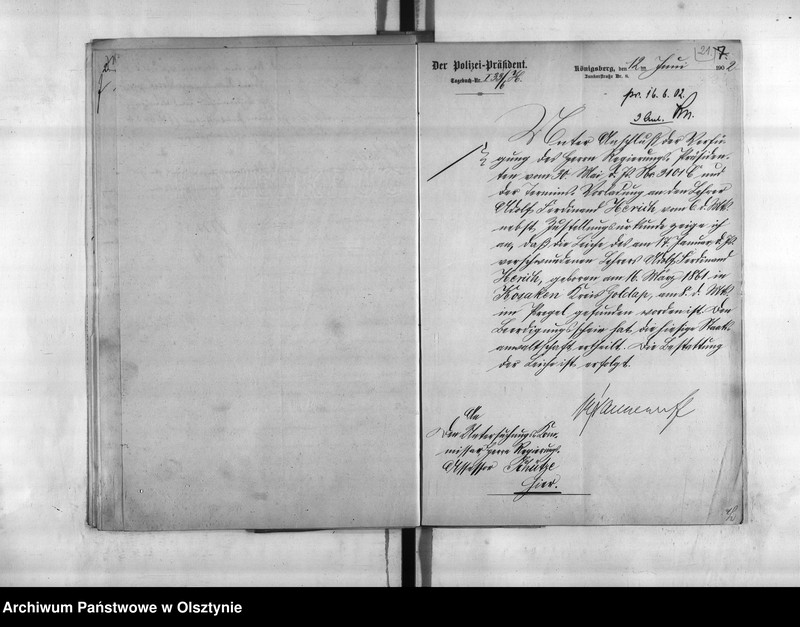 21
7.
Der Polizei-Präsident.
Tagebuch-Nr. I
Königsberg, den 12 ten Juni 1902.
Junkerstraße Nr. 8.
pr. 16. 6. 02.
3 Anl.
Unter Anschluß der Verfü-
gung des Herrn Regierungs-Präsiden-
ten vom 30. Mai d. Js. No 3101 C und
der Termins-Vorladung an den Lehrer
Adolf Ferdinand Herich vom 6. d. Mts.
nebst Zustellungsurkunde zeige ich
an, daß die Leiche des am 17. Januar d. Js.
verschwundenen Lehrers Adolf Ferdinand
Herich, geboren am 16. März 1861 in
Kosaken Kreis Goldap, am 8. d. Mts.
im Pregel gefunden worden ist. Den
Beerdigungsschein hat die hiesige Staats-
anwaltschaft ertheilt. Die Bestattung
der Leiche ist erfolgt.
An
den Untersuchungs-Kom-
missar Herrn Regierungs-
Assessor Schütze
hier.
Archiwum Państwowe w Olsztynie